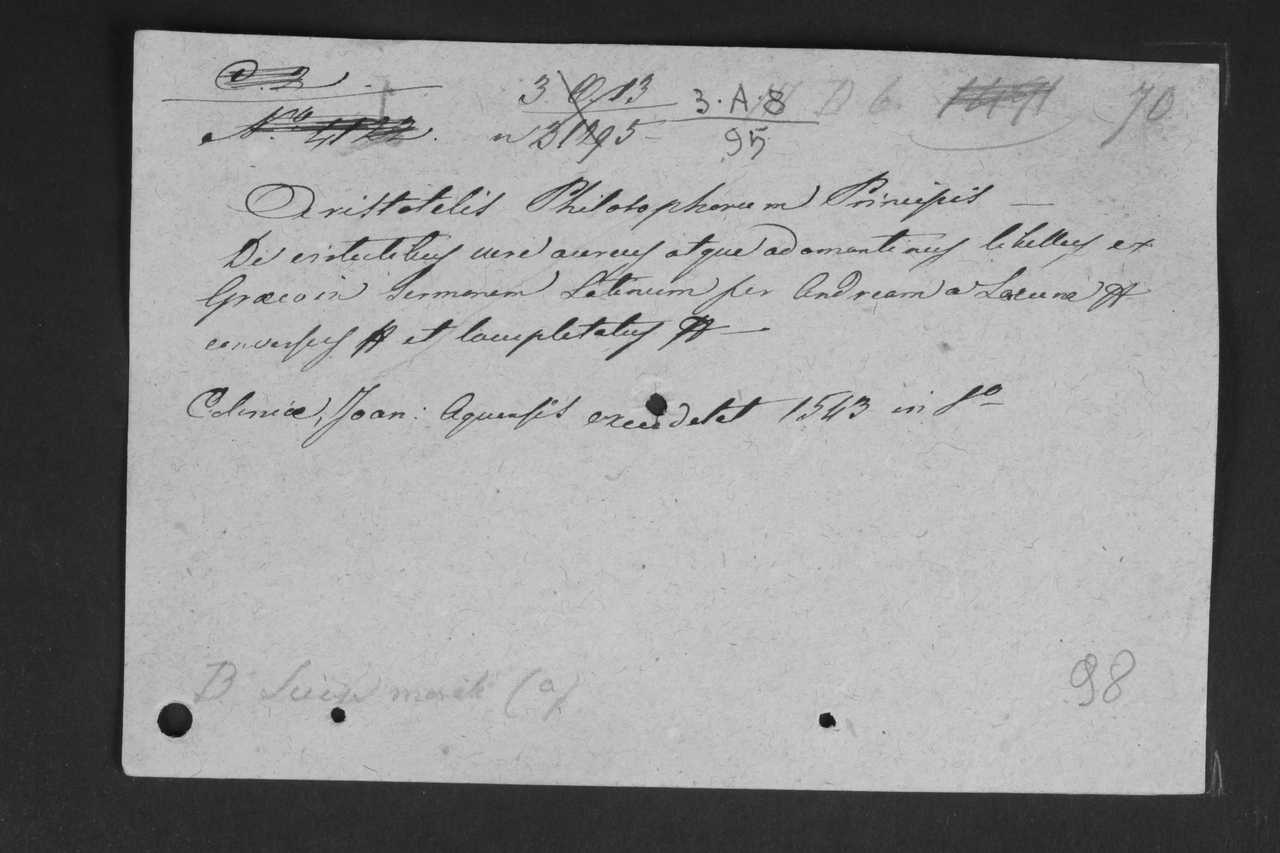 C. 2
3 O 13
3·A·8
B 6.
70
N.º 4122.
n 3195
95
Aristotelis Philosophorum Principis —
De virtutibus vere aureus atque adamantinus libellus ex
Græco in Sermonem Latinum per Andream a Lacuna
conversus et locupletatus —
Coloniæ, Joan: Aquensis excudebat 1543 in 8º
B Scien morali (a)
98